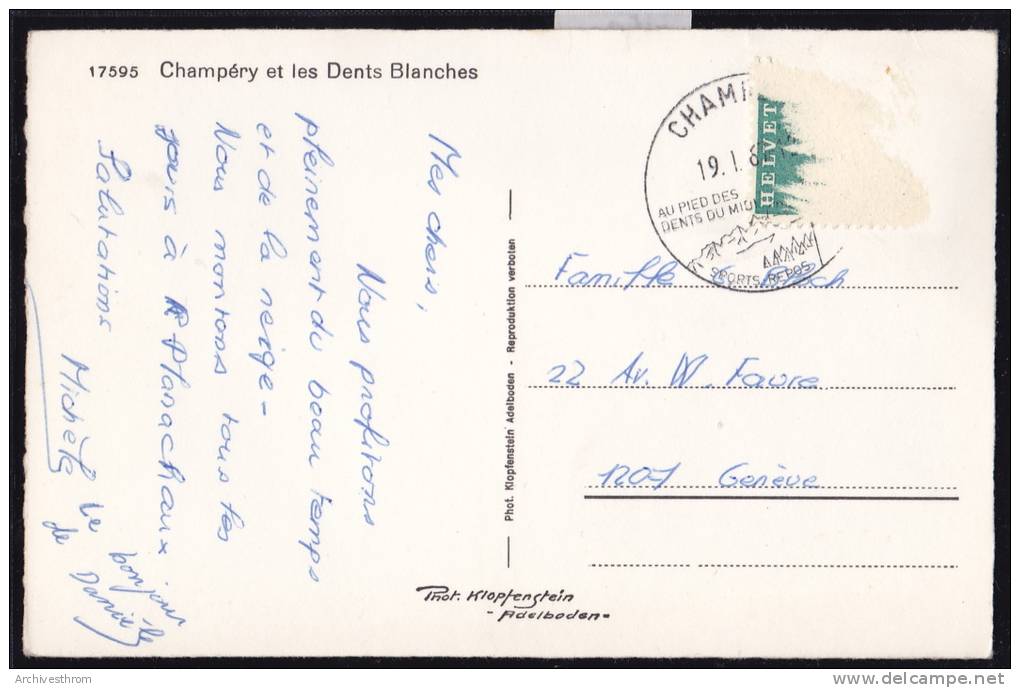 17595 Champéry et les Dents Blanches
Mes chers,
Nous profitons
pleinement du beau temps
et de la neige -
Nous montons tous les
jours à Planachaux
Salutations
Michèle
Le bonjour
de Danièle
Phot. Klopfenstein Adelboden - Reproduktion verboten
CHAM
19. I. 6
AU PIED DES
DENTS DU MIDI
SPORTS REPOS
HELVET
Famille
22 Av. W. Favre
1207 Genève
Phot. Klopfenstein
- Adelboden -
Archivesthrom
www.delcampe.net